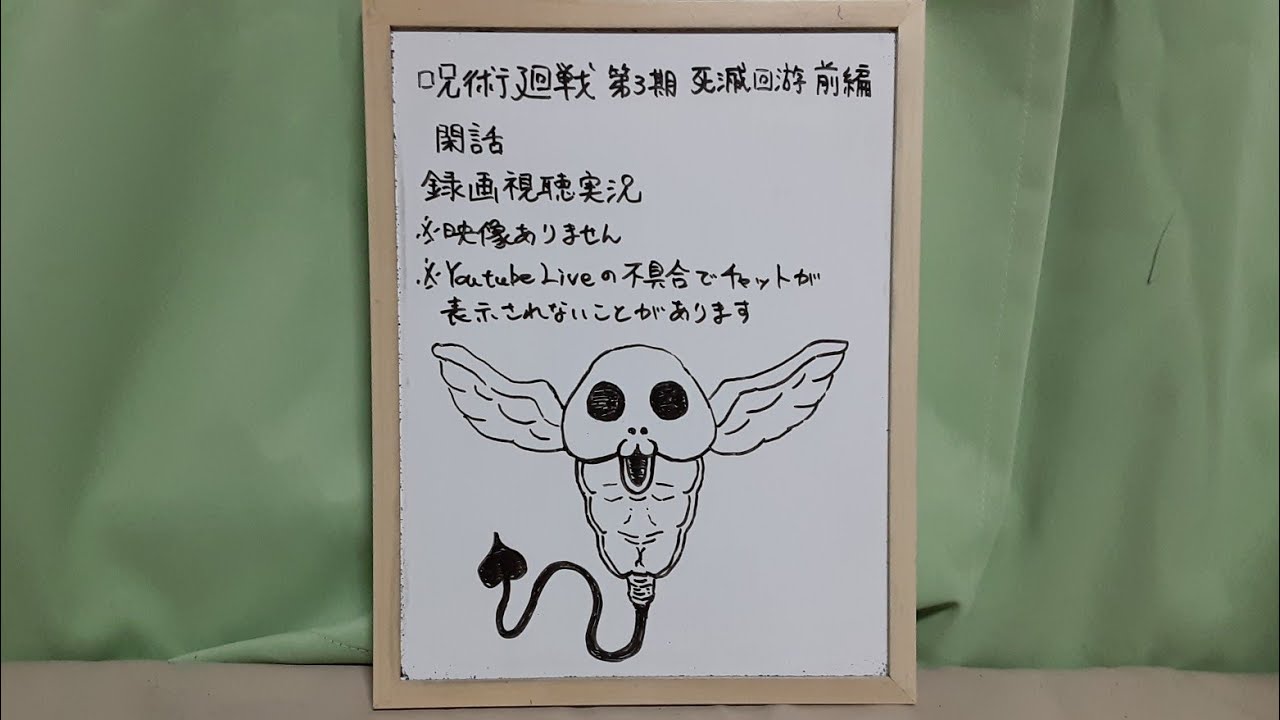 呪術廻戦 第3期 死滅回游 前編
閑話
録画視聴実況
※映像ありません
※Youtube Liveの不具合でチャットが
表示されないことがあります